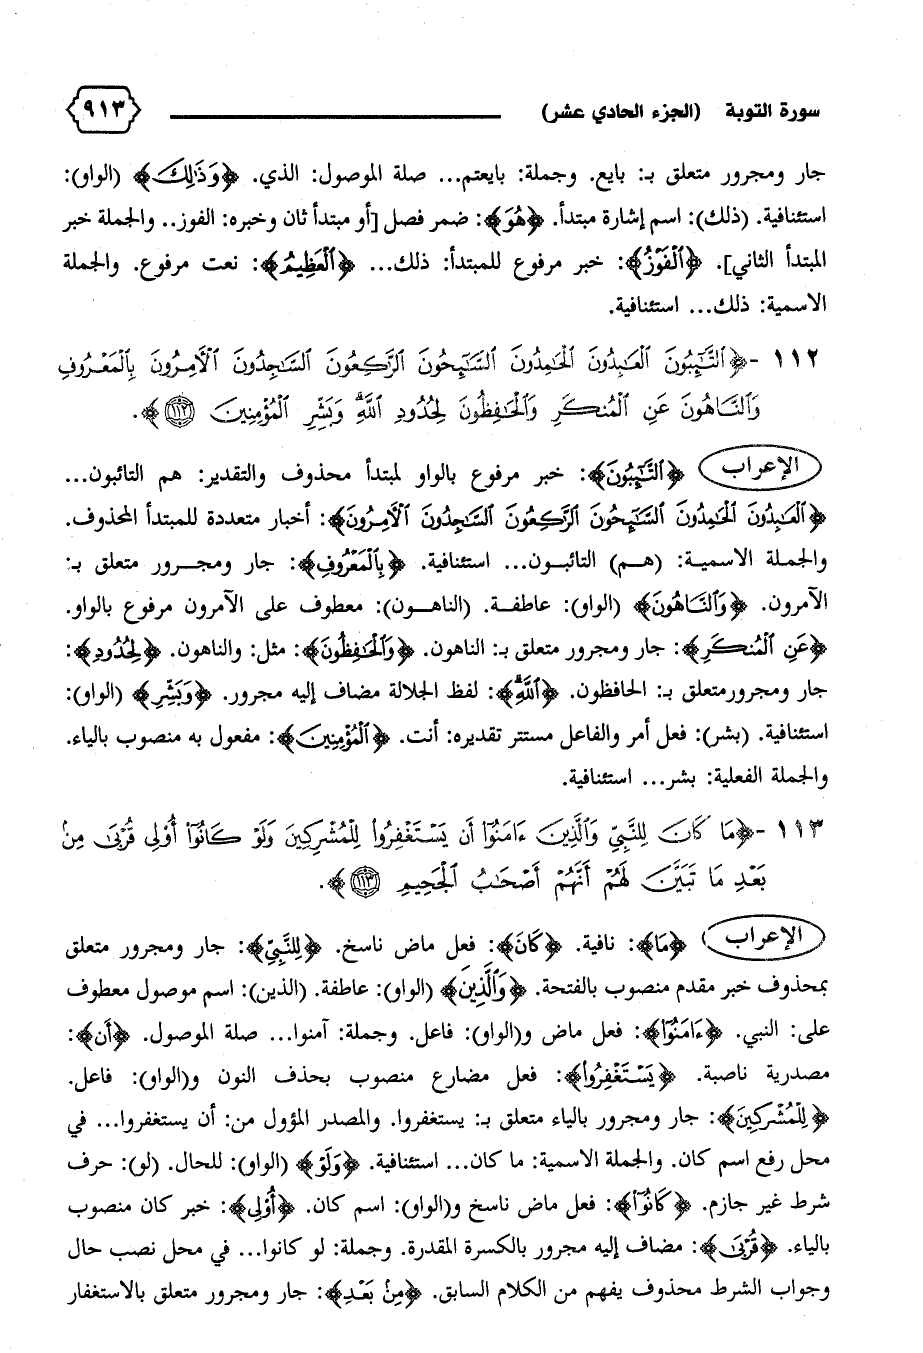 سورة التوبة (الجزء الحادي عشر) ٩١٣
جار ومجرور متعلق بـ: بايع. وجملة: بايعتم... صلة الموصول: الذي. ﴿وَذَٰلِكَ﴾ (الواو):
استئنافية. (ذلك): اسم إشارة مبتدأ. ﴿هُوَ﴾: ضمر فصل [أو مبتدأ ثان وخبره: الفوز.. والجملة خبر
المبتدأ الثاني]. ﴿ٱلْفَوْزُ﴾: خبر مرفوع للمبتدأ: ذلك... ﴿ٱلْعَظِيمُ﴾: نعت مرفوع. والجملة
الاسمية: ذلك... استئنافية.
١١٢ -﴿ٱلتَّٰٓئِبُونَ ٱلْعَٰبِدُونَ ٱلْحَٰمِدُونَ ٱلسَّٰٓئِحُونَ ٱلرَّٰكِعُونَ ٱلسَّٰجِدُونَ ٱلْأٓمِرُونَ بِٱلْمَعْرُوفِ
وَٱلنَّاهُونَ عَنِ ٱلْمُنكَرِ وَٱلْحَٰفِظُونَ لِحُدُودِ ٱللَّهِۗ وَبَشِّرِ ٱلْمُؤْمِنِينَ ﴿١١٢﴾ ﴾.
الإعراب ﴿ٱلتَّٰٓئِبُونَ﴾: خبر مرفوع بالواو لمبتدأ محذوف والتقدير: هم التائبون...
﴿ٱلْعَٰبِدُونَ ٱلْحَٰمِدُونَ ٱلسَّٰٓئِحُونَ ٱلرَّٰكِعُونَ ٱلسَّٰجِدُونَ ٱلْأٓمِرُونَ﴾: أخبار متعددة للمبتدأ المحذوف.
والجملة الاسمية: (هم) التائبون... استئنافية. ﴿بِٱلْمَعْرُوفِ﴾: جار ومجرور متعلق بـ:
الآمرون. ﴿وَٱلنَّاهُونَ﴾ (الواو): عاطفة. (الناهون): معطوف على الآمرون مرفوع بالواو.
﴿عَنِ ٱلْمُنكَرِ﴾: جار ومجرور متعلق بـ: الناهون. ﴿وَٱلْحَٰفِظُونَ﴾: مثل: والناهون. ﴿لِحُدُودِ﴾:
جار ومجرورمتعلق بـ: الحافظون. ﴿ٱللَّهِۗ﴾: لفظ الجلالة مضاف إليه مجرور. ﴿وَبَشِّرِ﴾ (الواو):
استئنافية. (بشر): فعل أمر والفاعل مستتر تقديره: أنت. ﴿ٱلْمُؤْمِنِينَ﴾: مفعول به منصوب بالياء.
والجملة الفعلية: بشر... استئنافية.
١١٣ -﴿مَا كَانَ لِلنَّبِيِّ وَٱلَّذِينَ ءَامَنُوٓا۟ أَن يَسْتَغْفِرُوا۟ لِلْمُشْرِكِينَ وَلَوْ كَانُوٓا۟ أُو۟لِى قُرْبَىٰ مِنۢ
بَعْدِ مَا تَبَيَّنَ لَهُمْ أَنَّهُمْ أَصْحَٰبُ ٱلْجَحِيمِ ﴿١١٣﴾ ﴾.
الإعراب ﴿مَا﴾: نافية. ﴿كَانَ﴾: فعل ماض ناسخ. ﴿لِلنَّبِيِّ﴾: جار ومجرور متعلق
بمحذوف خبر مقدم منصوب بالفتحة. ﴿وَٱلَّذِينَ﴾ (الواو): عاطفة. (الذين): اسم موصول معطوف
على: النبي. ﴿ءَامَنُوٓا۟﴾: فعل ماض و(الواو): فاعل. وجملة: آمنوا... صلة الموصول. ﴿أَن﴾:
مصدرية ناصبة. ﴿يَسْتَغْفِرُوا۟﴾: فعل مضارع منصوب بحذف النون و(الواو): فاعل.
﴿لِلْمُشْرِكِينَ﴾: جار ومجرور بالياء متعلق بـ: يستغفروا. والمصدر المؤول من: أن يستغفروا... في
محل رفع اسم كان. والجملة الاسمية: ما كان... استئنافية. ﴿وَلَوْ﴾ (الواو): للحال. (لو): حرف
شرط غير جازم. ﴿كَانُوٓا۟﴾: فعل ماض ناسخ و(الواو): اسم كان. ﴿أُو۟لِى﴾: خبر كان منصوب
بالياء. ﴿قُرْبَىٰ﴾: مضاف إليه مجرور بالكسرة المقدرة. وجملة: لو كانوا... في محل نصب حال
وجواب الشرط محذوف يفهم من الكلام السابق. ﴿مِنۢ بَعْدِ﴾: جار ومجرور متعلق بالاستغفار